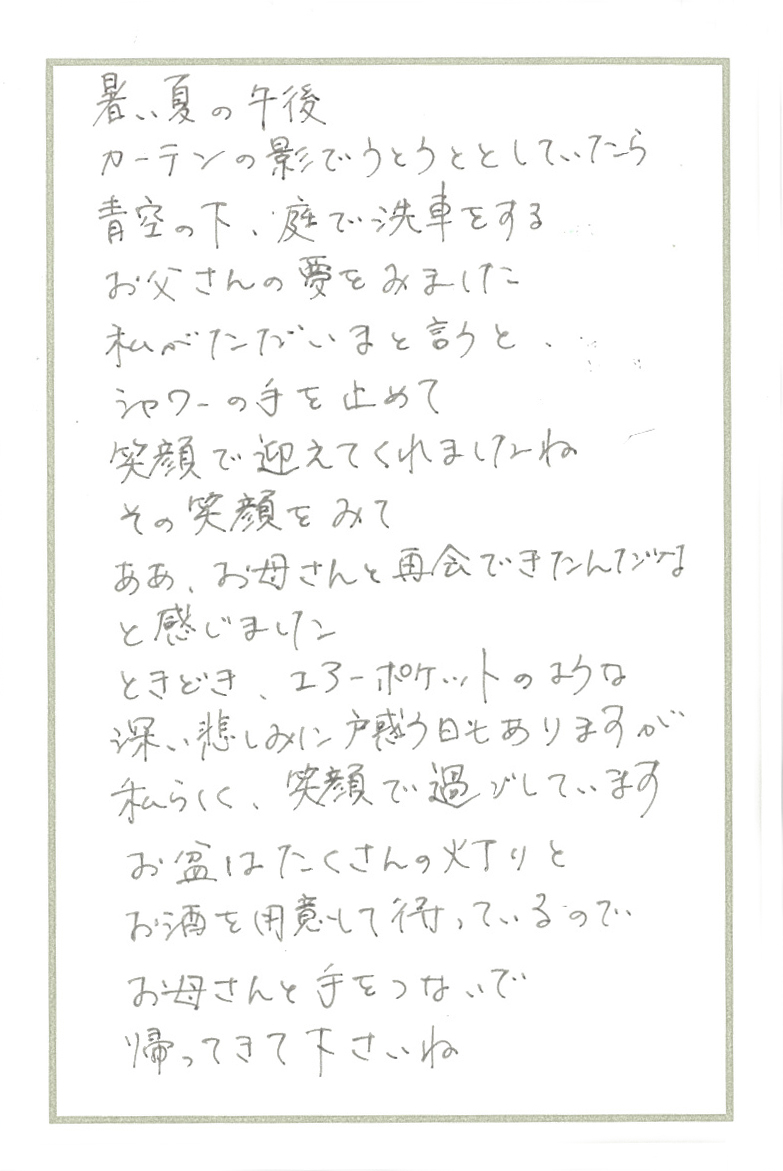 暑い夏の午後
カーテンの影でうとうととしていたら
青空の下、庭で洗車をする
お父さんの夢をみました
私がただいまと言うと、
シャワーの手を止めて
笑顔で迎えてくれましたね
その笑顔をみて
ああ、お母さんと再会できたんだな
と感じました
ときどき、エアーポケットのような
深い悲しみに戸惑う日もありますが
私らしく、笑顔で過ごしています
お盆はたくさんの灯りと
お酒を用意して待っているので
お母さんと手をつないで
帰ってきて下さいね